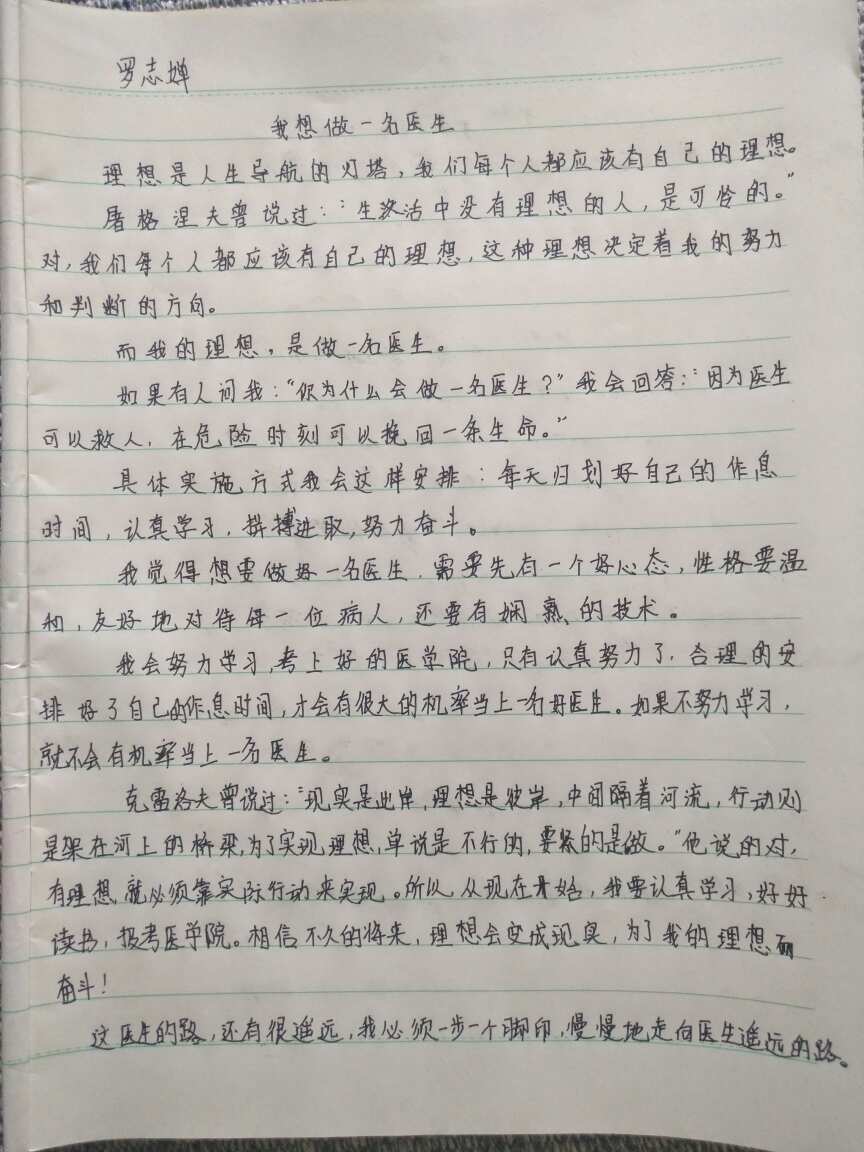 罗志婵
我想做一名医生
理想是人生导航的灯塔，我们每个人都应该有自己的理想。
屠格涅夫曾说过：“生活中没有理想的人，是可怜的。”
对，我们每个人都应该有自己的理想，这种理想决定着我的努力
和判断的方向。
而我的理想，是做一名医生。
如果有人问我：“你为什么会做一名医生？”我会回答：“因为医生
可以救人，在危险时刻可以挽回一条生命。”
具体实施方式我会这样安排：每天归划好自己的作息
时间，认真学习，拼搏进取，努力奋斗。
我觉得想要做好一名医生，需要先有一个好心态，性格要温
和，友好地对待每一位病人，还要有娴熟的技术。
我会努力学习，考上好的医学院，只有认真努力了，合理的安
排好了自己的作息时间，才会有很大的机率当上一名好医生。如果不努力学习，
就不会有机率当上一名医生。
克雷洛夫曾说过：“现实是此岸，理想是彼岸，中间隔着河流，行动则
是架在河上的桥梁，为了实现理想，单说是不行的，要紧的是做。”他说的对，
有理想就必须靠实际行动来实现。所以，从现在开始，我要认真学习，好好
读书，报考医学院。相信不久的将来，理想会变成现实，为了我的理想而
奋斗！
这医生的路，还有很遥远，我必须一步一个脚印，慢慢地走向医生遥远的路。